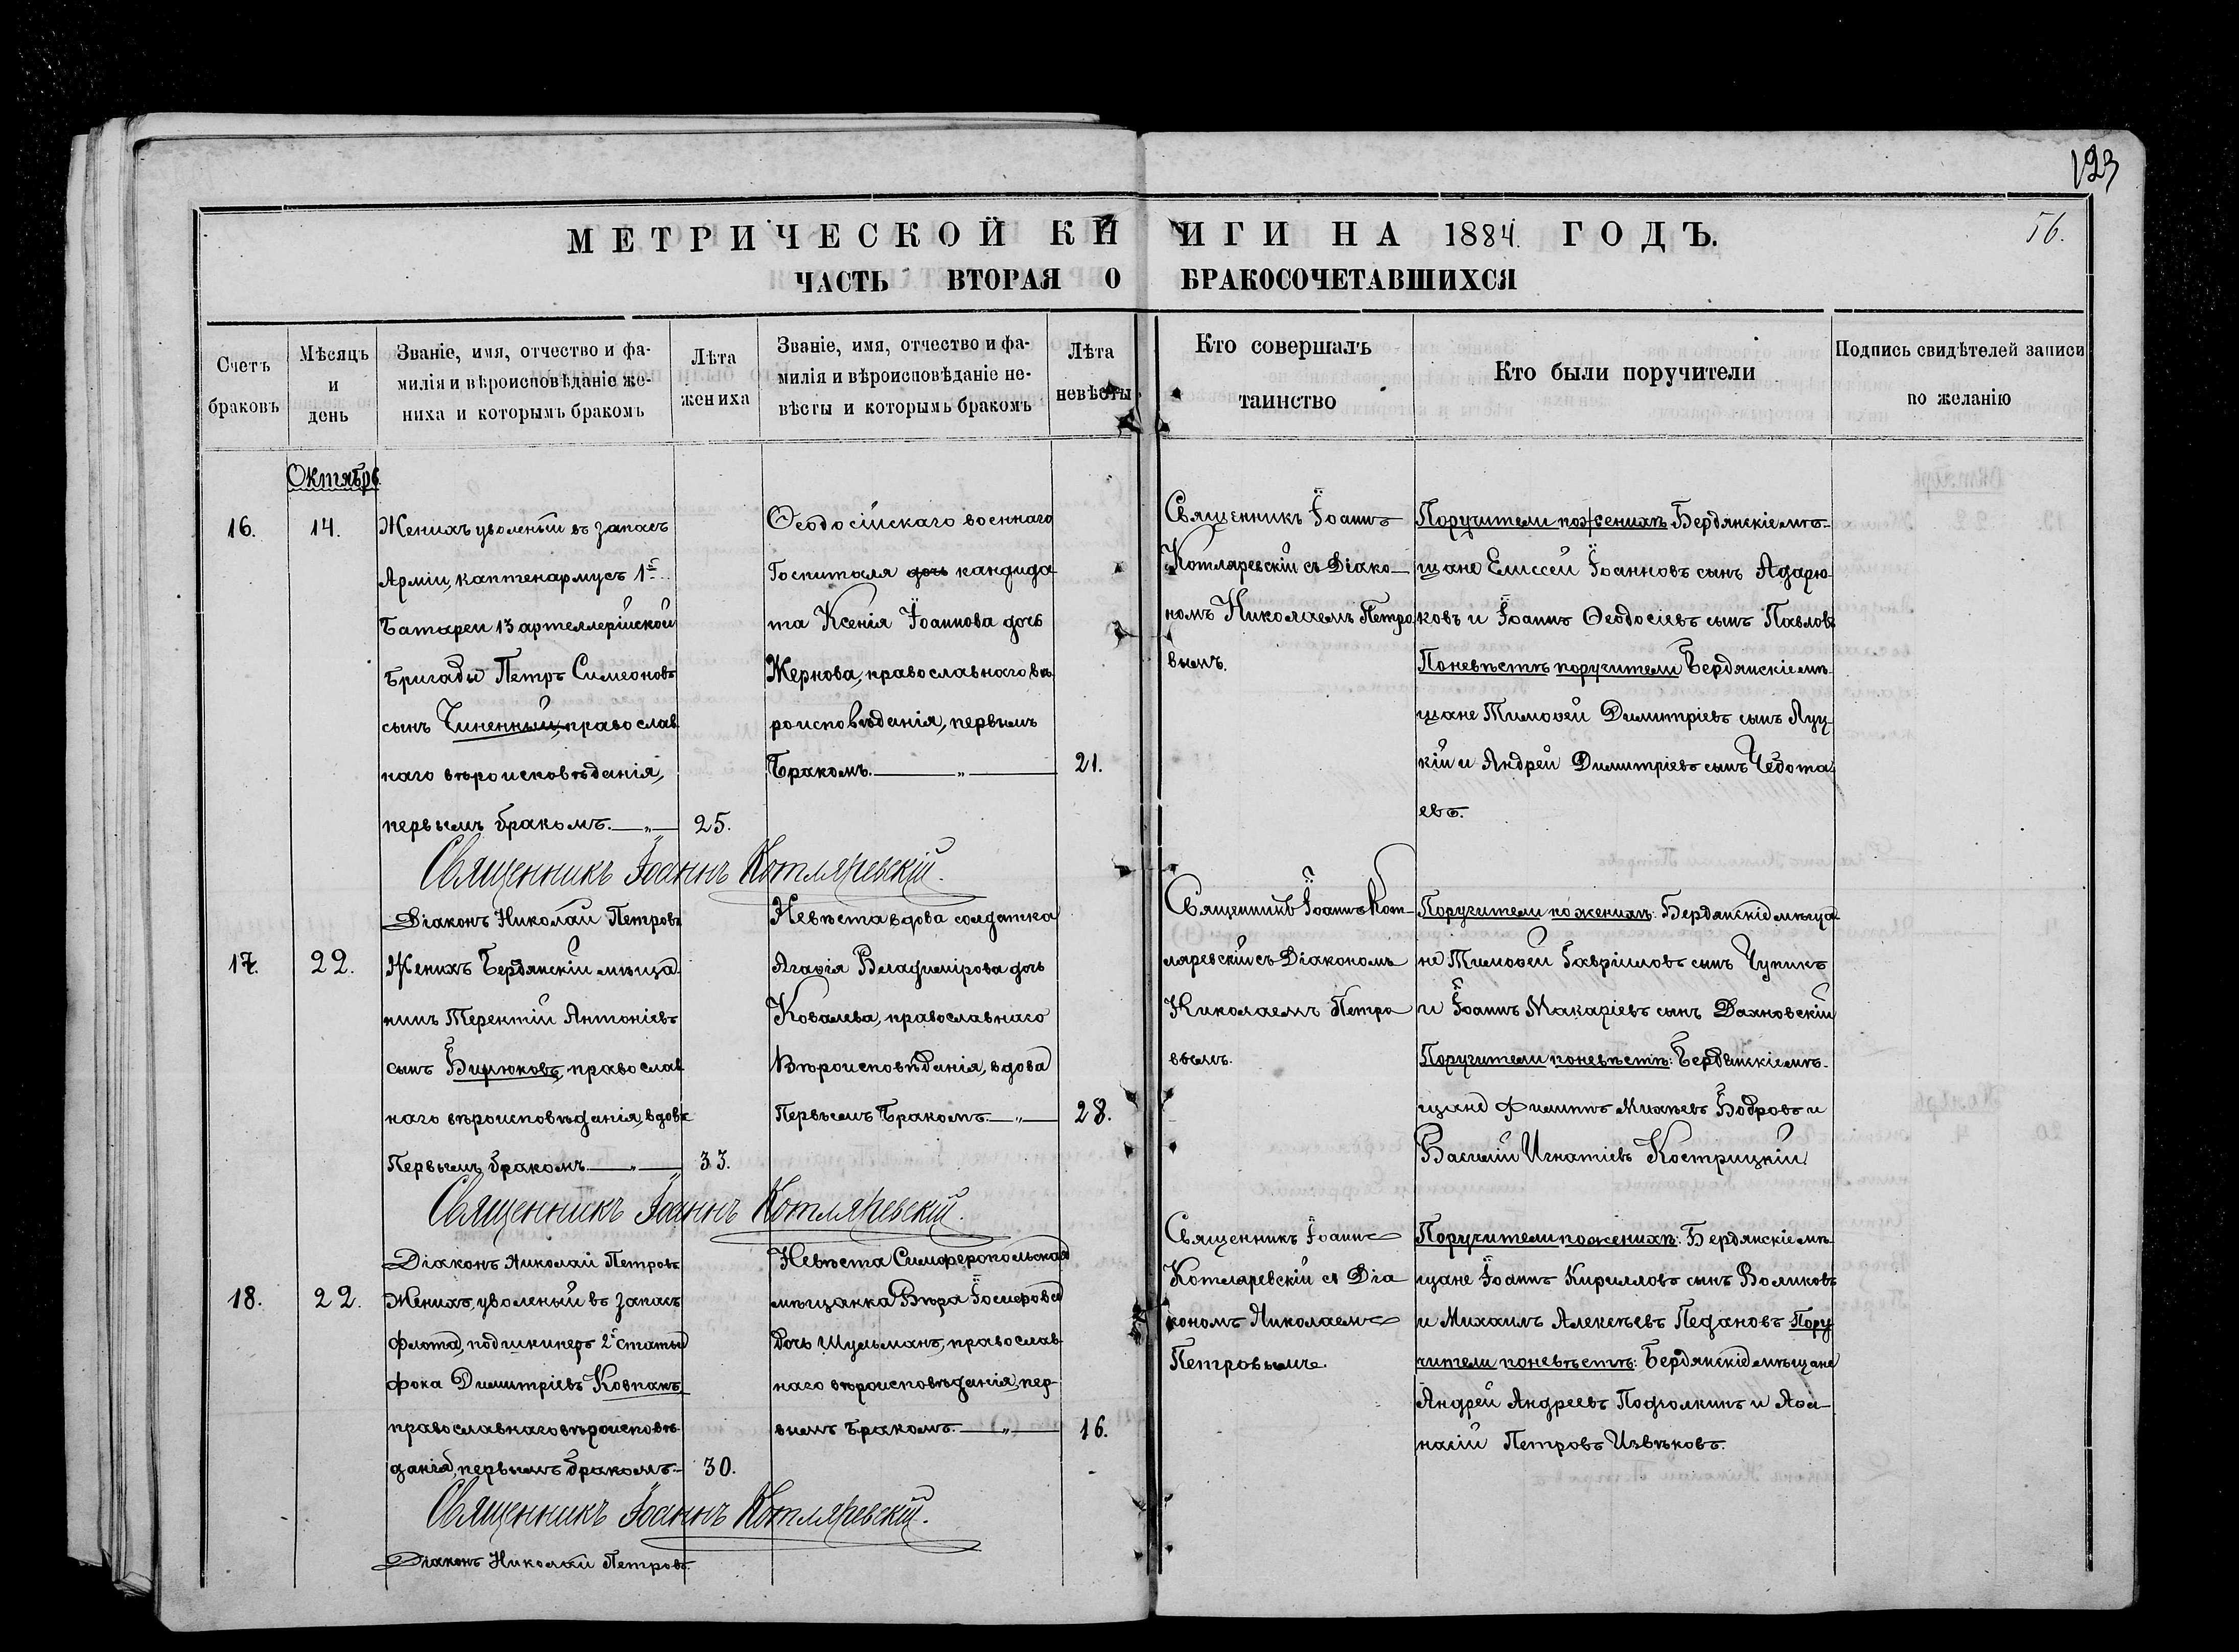 123
МЕТРИЧЕСКОЙ КНИГИ НА 1884. ГОДЪ.
56.
ЧАСТЬ ВТОРАЯ О БРАКОСОЧЕТАВШИХСЯ
Счетъ браковъ
Мѣсяцъ и день
Званіе, имя, отчество и фа-
милія и вѣроисповѣданіе же-
ниха и которымъ бракомъ
Лѣта жениха
Званіе, имя, отчество и фа-
милія и вѣроисповѣданіе не-
вѣсты и которымъ бракомъ
Лѣта невѣсты
Кто совершалъ таинство
Кто были поручители
Подпись свидѣтелей записи по желанію
Октябрь
16.
14.
Женихъ уволеный въ запасъ
Арміи, каптенармусъ 1й
Батареи 13 артеллерійской
Бригады Петръ Симеоновъ
сынъ Чиненный, православ
наго вѣроисповѣданія,
первымъ бракомъ.
25.
Ѳеодосійскаго военнаго
Госпиталя дочь кандида
та Ксенія Іоаннова дочь
Жернова, православнаго вѣ
роисповѣданія, первымъ
Бракомъ.
21.
Священникъ Іоаннъ
Котляревскій съ Діако-
номъ Николаемъ Петро
вымъ.
Поручители по женихѣ Бердянскіе мѣ-
щане Елиссей Іоанновъ сынъ Адарю-
ковъ и Іоаннъ Ѳеодосіевъ сынъ Павловъ
По невѣстѣ поручители Бердянскіе мѣ-
щане Тимоѳей Димитріевъ сынъ Луц-
кій и Андрей Димитріевъ сынъ Чебота
евъ.
Священникъ Іоаннъ Котляревскій.
Діаконъ Николай Петровъ
17.
22.
Женихъ Бердянскій мѣща
нинъ Терентій Антоніевъ
сынъ Бирюковъ, православ
наго вѣроисповѣданія, вдовъ
Первымъ бракомъ.
33.
Невѣста вдова солдатка
Агаѳія Владимірова дочь
Ковалева, православнаго
Вѣроисповѣданія, вдова
Первымъ Бракомъ.
28.
Священникъ Іоаннъ Кот-
ляревскій съ Діакономъ
Николаемъ Петро
вымъ.
Поручители по женихѣ: Бердянскіе мѣща
не Тимоѳей Гавріиловъ сынъ Чупикъ
и Іоаннъ Макаріевъ сынъ Дахновскій
Поручители по невѣстѣ: Бердянскіе мѣ-
щане Филиппъ Михѣевъ Бодровъ и
Василій Игнатіевъ Кострицкій
Священникъ Іоаннъ Котляревскій.
Діаконъ Николай Петровъ
18.
22.
Женихъ, уволеный въ запасъ
флота, подшкиперъ 2й статьи
Фока Димитріевъ Ковпакъ
православнаго вѣроисповѣ
данія, первымъ бракомъ.
30.
Невѣста Симферопольская
мѣщанка Вѣра Іосифова
дочь Шульманъ, православ-
наго вѣроисповѣданія, пер-
вымъ Бракомъ.
16.
Священникъ Іоаннъ
Котляревскій съ Діа
кономъ Николаемъ
Петровымъ.
Поручители по женихѣ: Бердянскіе мѣ-
щане Іоаннъ Кирилловъ сынъ Воликовъ
и Михаилъ Алексѣевъ Педановъ Пору
чители по невѣстѣ: Бердянскіе мѣщане
Андрей Андреевъ Подголкинъ и Аѳа-
насій Петровъ Извѣковъ.
Священникъ Іоаннъ Котляревскій.
Діаконъ Николай Петровъ.